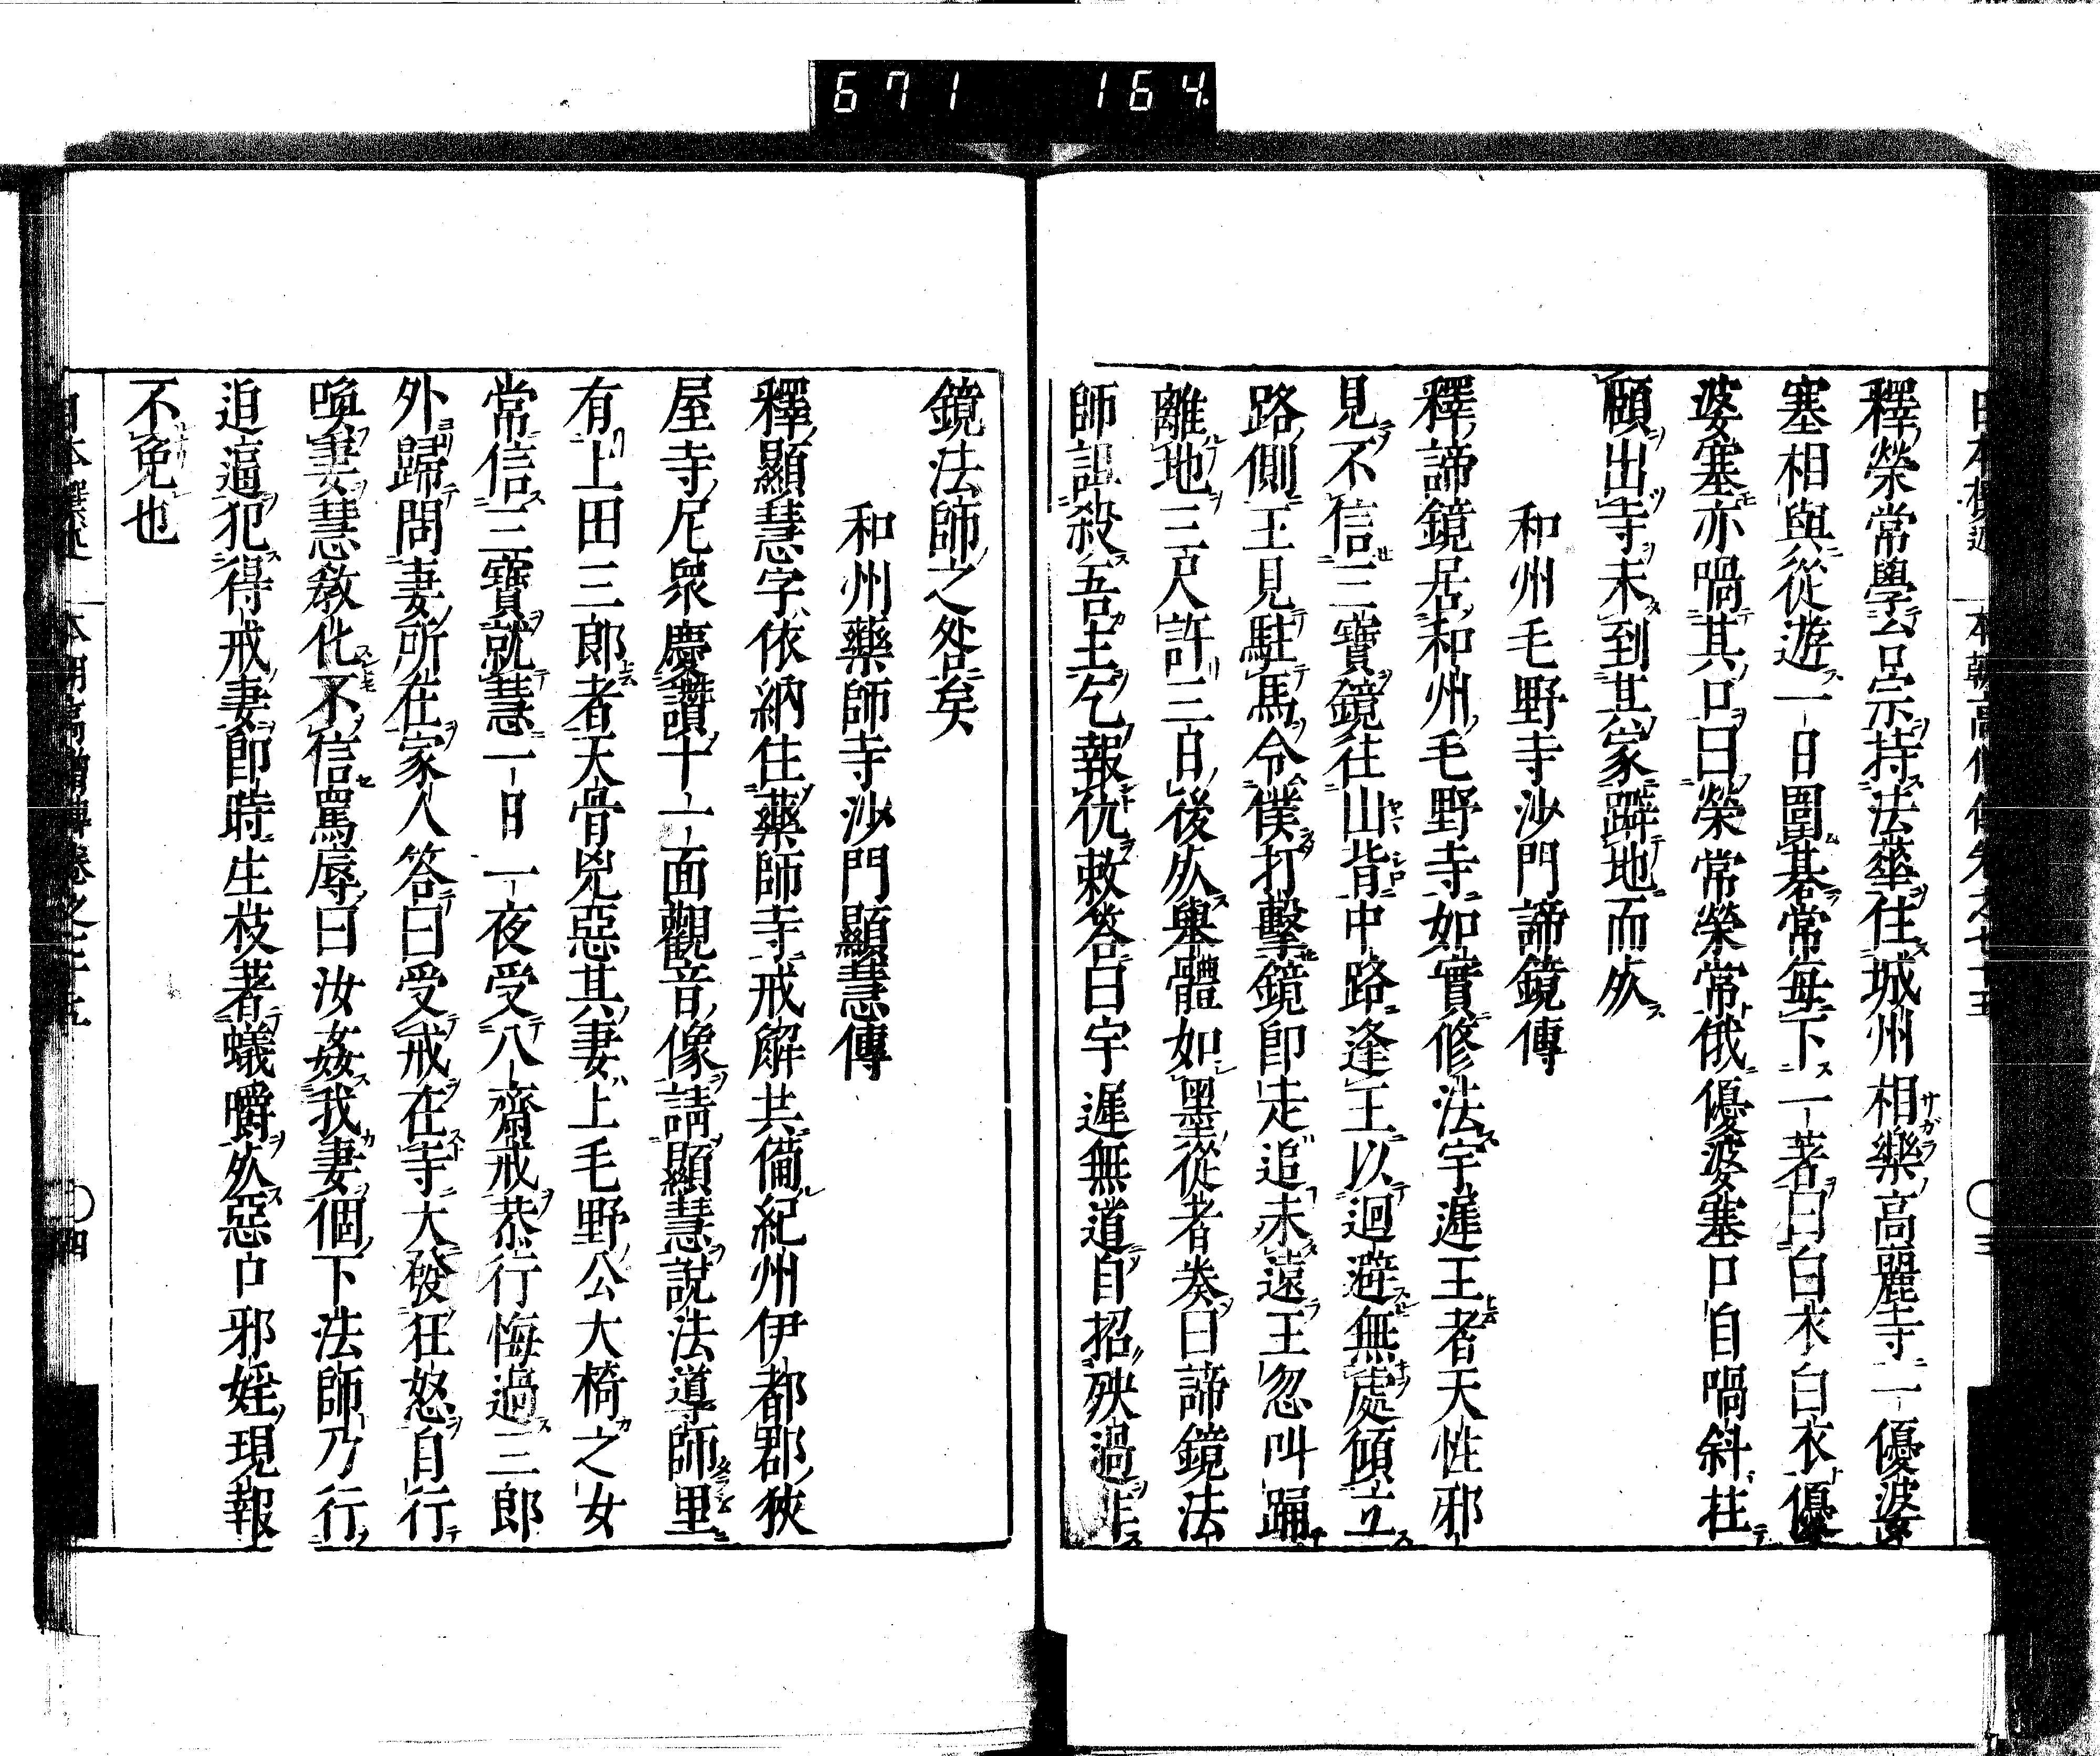 671 164
釋榮常學台宗持法華住城州相樂高麗寺一優婆
塞相與從遊一日圍碁常每下一著曰白木白衣優
婆塞亦喎其口曰榮常榮常俄優婆塞口自喎斜拄
頤出寺未到其家躃地而死
和州毛野寺沙門諦鏡傳
釋諦鏡居和州毛野寺如實修法宇遲王者天性邪
見不信三寶鏡往山背中路逢王以迴避無處傾立
路側王見駐馬令僕打擊鏡卽走追未遠王忽叫踊
離地三尺許三日後死擧體如墨從者奏曰諦鏡法
師詛殺吾主乞報仇敕答曰宇遲無道自招殃過非
鏡法師之咎矣
和州藥師寺沙門顯慧傳
釋顯慧字依納住藥師寺戒解共備紀州伊都郡狹
屋寺尼衆慶讚十一面觀音像請顯慧說法導師里
有上田三郎者天骨兇惡其妻上毛野公大椅之女
常信三寶就慧一日一夜受八齋戒恭行悔過三郎
外歸問妻所在家人答曰受戒在寺大發狂怒自行
喚妻慧敎化不信罵辱曰汝姦我妻個下法師乃行
迫逼犯得戒妻卽時生枝著蟻嚼死惡口邪婬現報
不免也